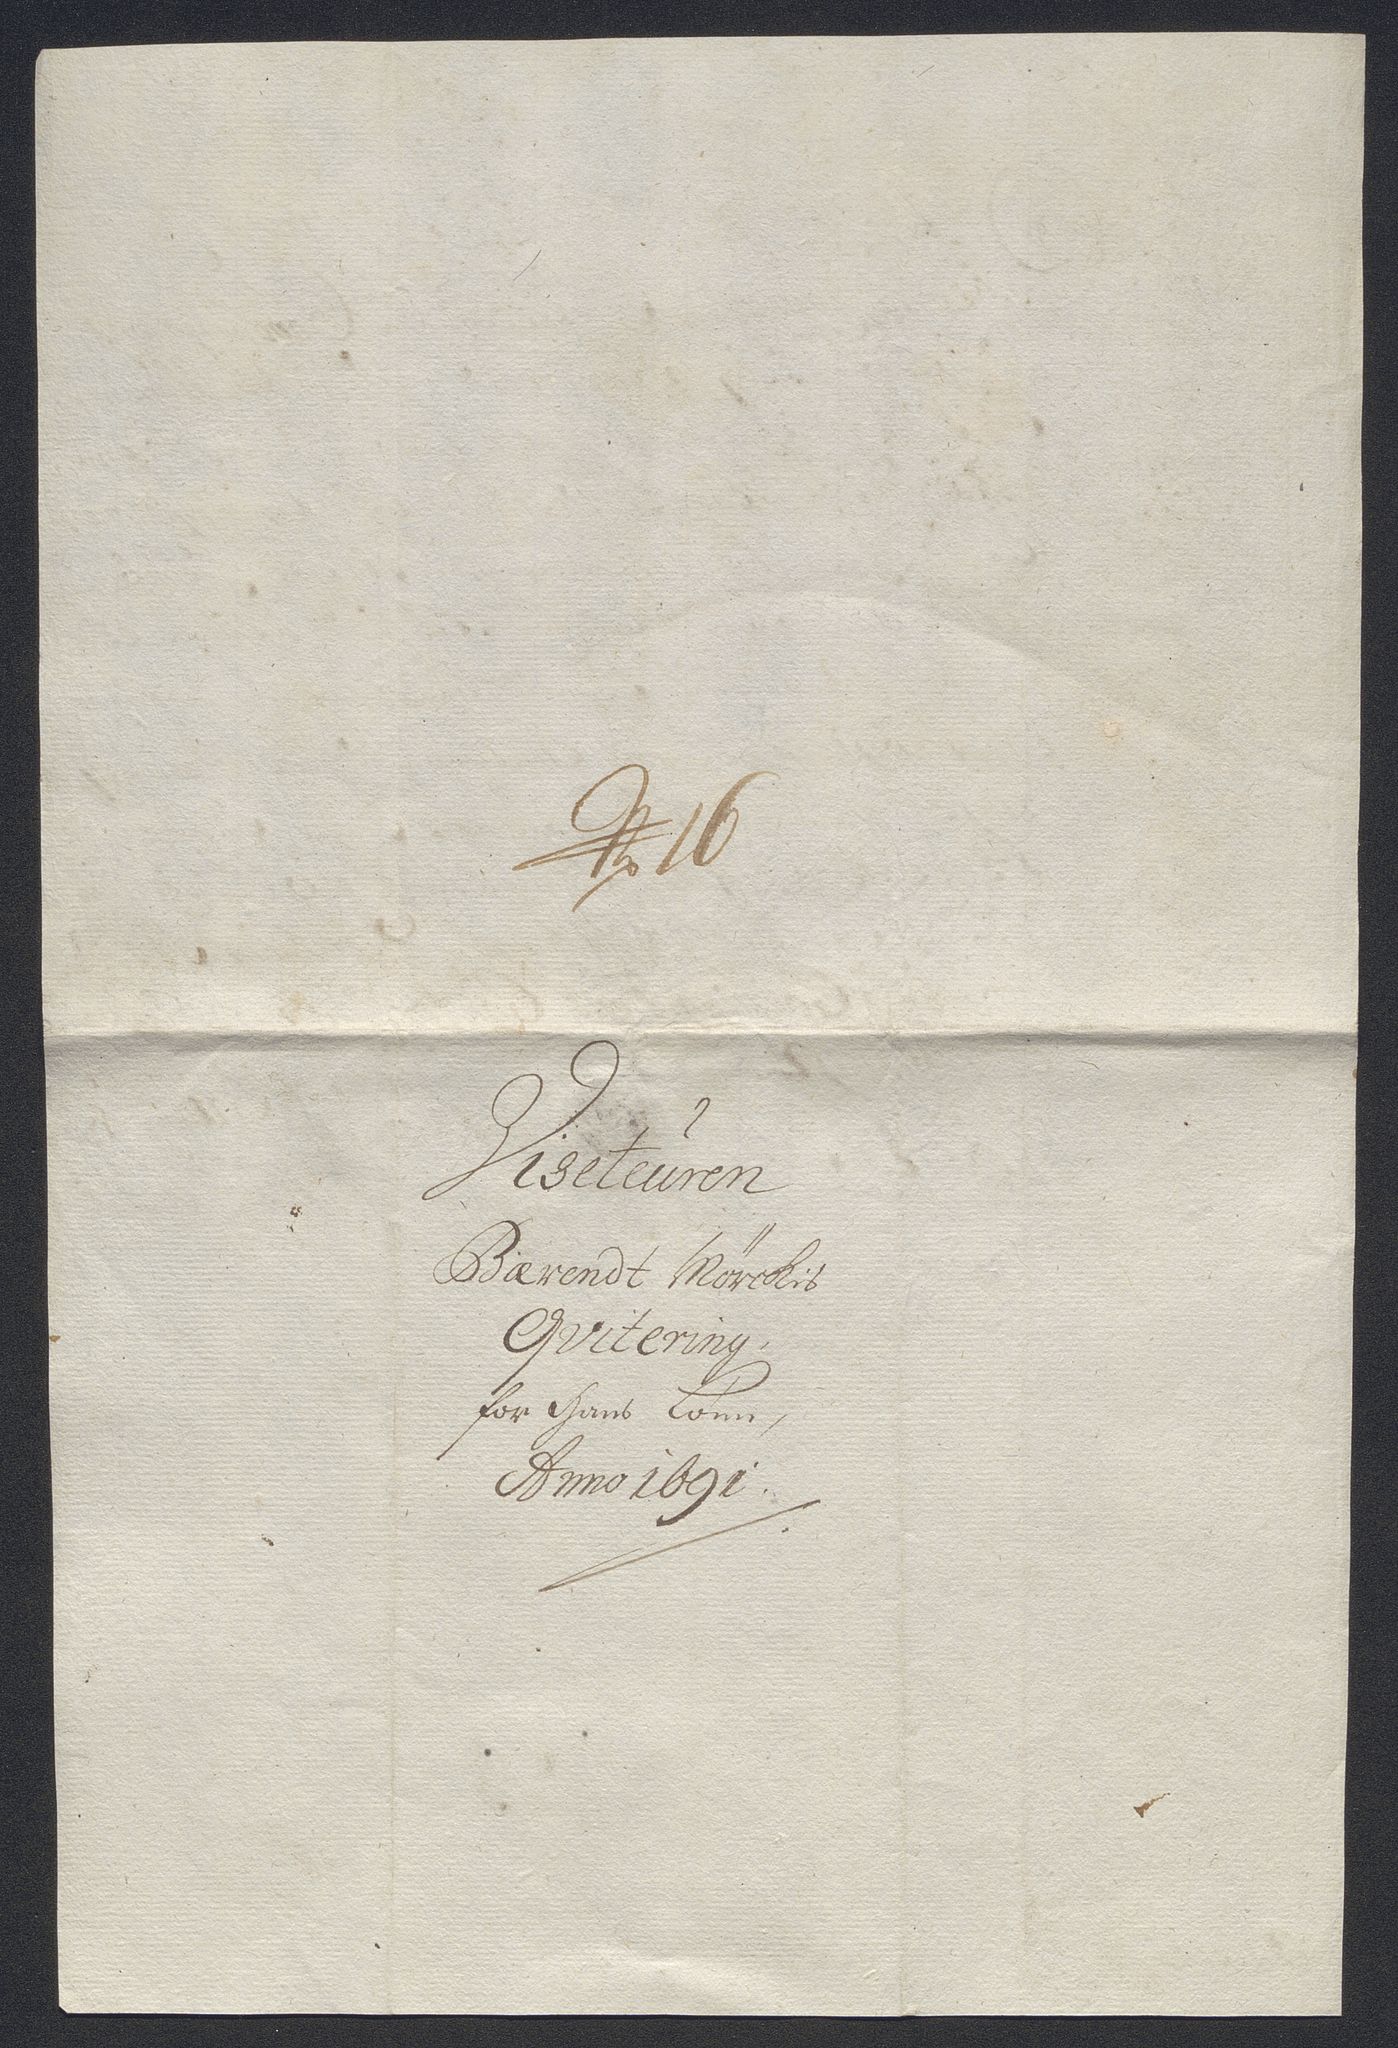 No 16
Viseteuren
Bærendt Mörckis
Qvitering.
for Hans Lönn,
Anno 1691.